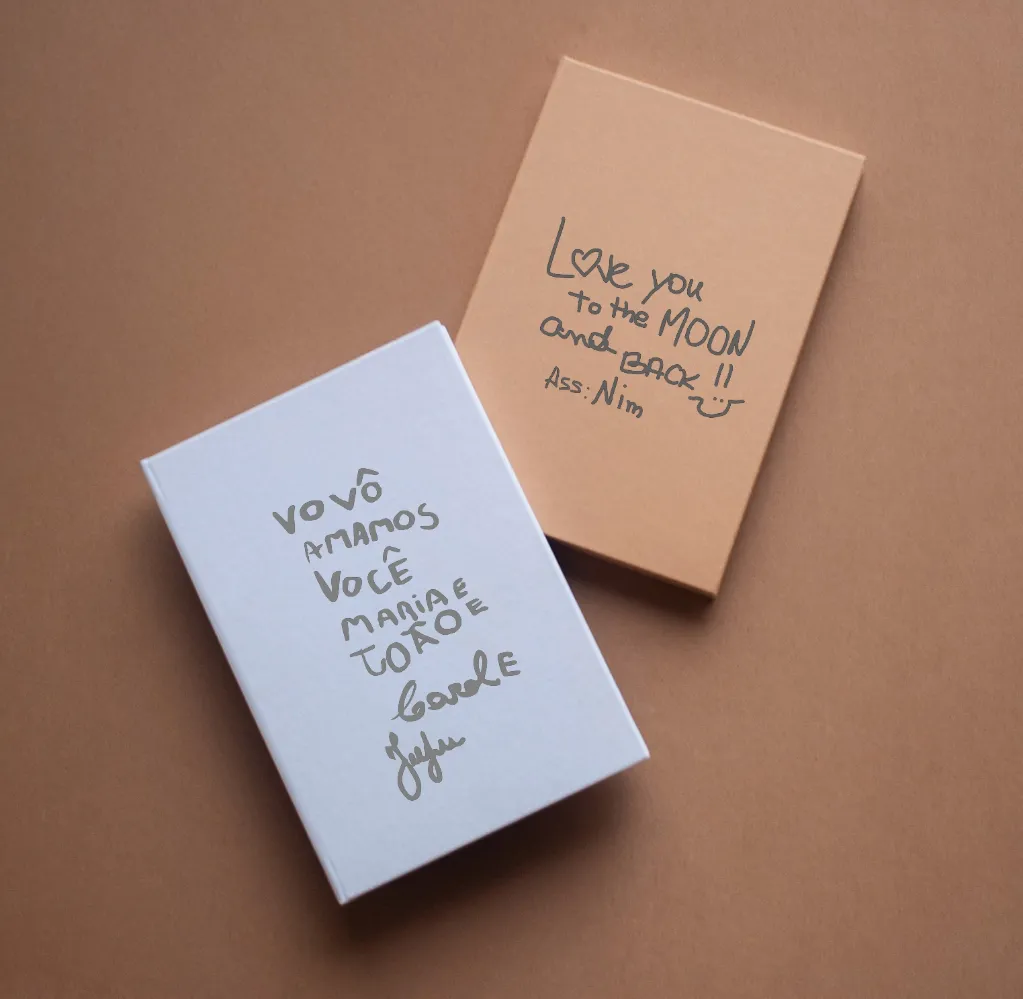 Love you
to the MOON
and BACK !!
Ass: Nim
VOVÔ
AMAMOS
VOCÊ
MARiA E
JOÃO E
Carol E
Juju